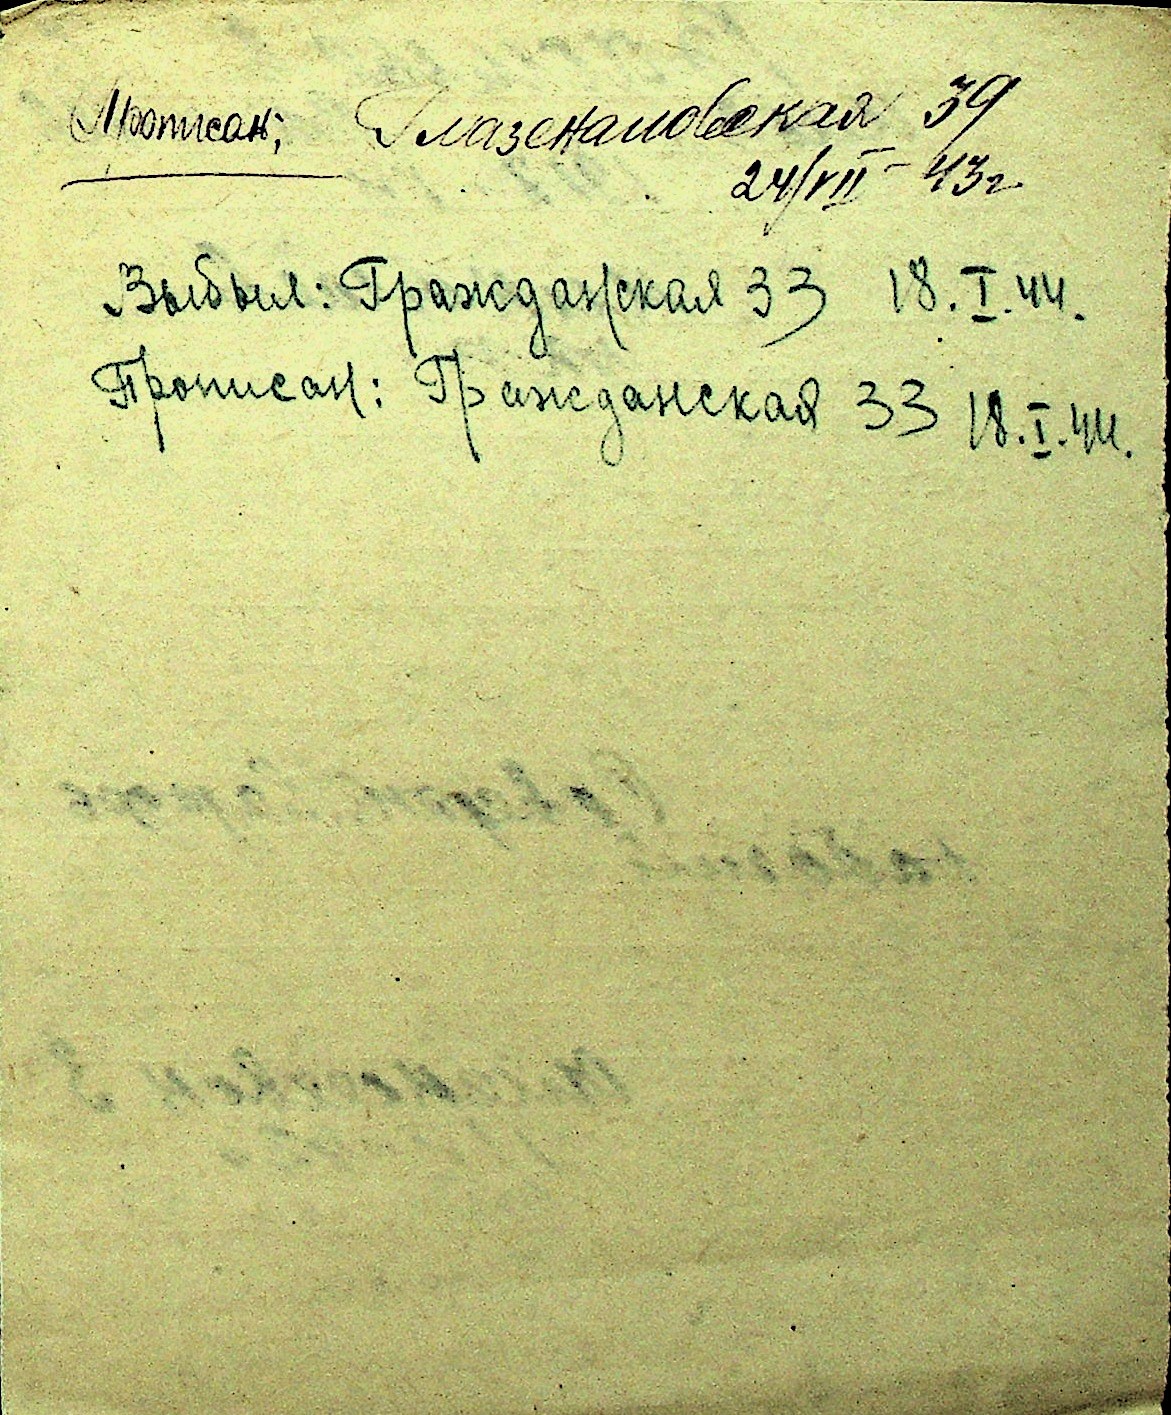 Прописан; Глазенаповская 39
24/VII - 43г
Выбыл: Гражданская 33 18.I.44.
Прописан: Гражданская 33 18.I.44.